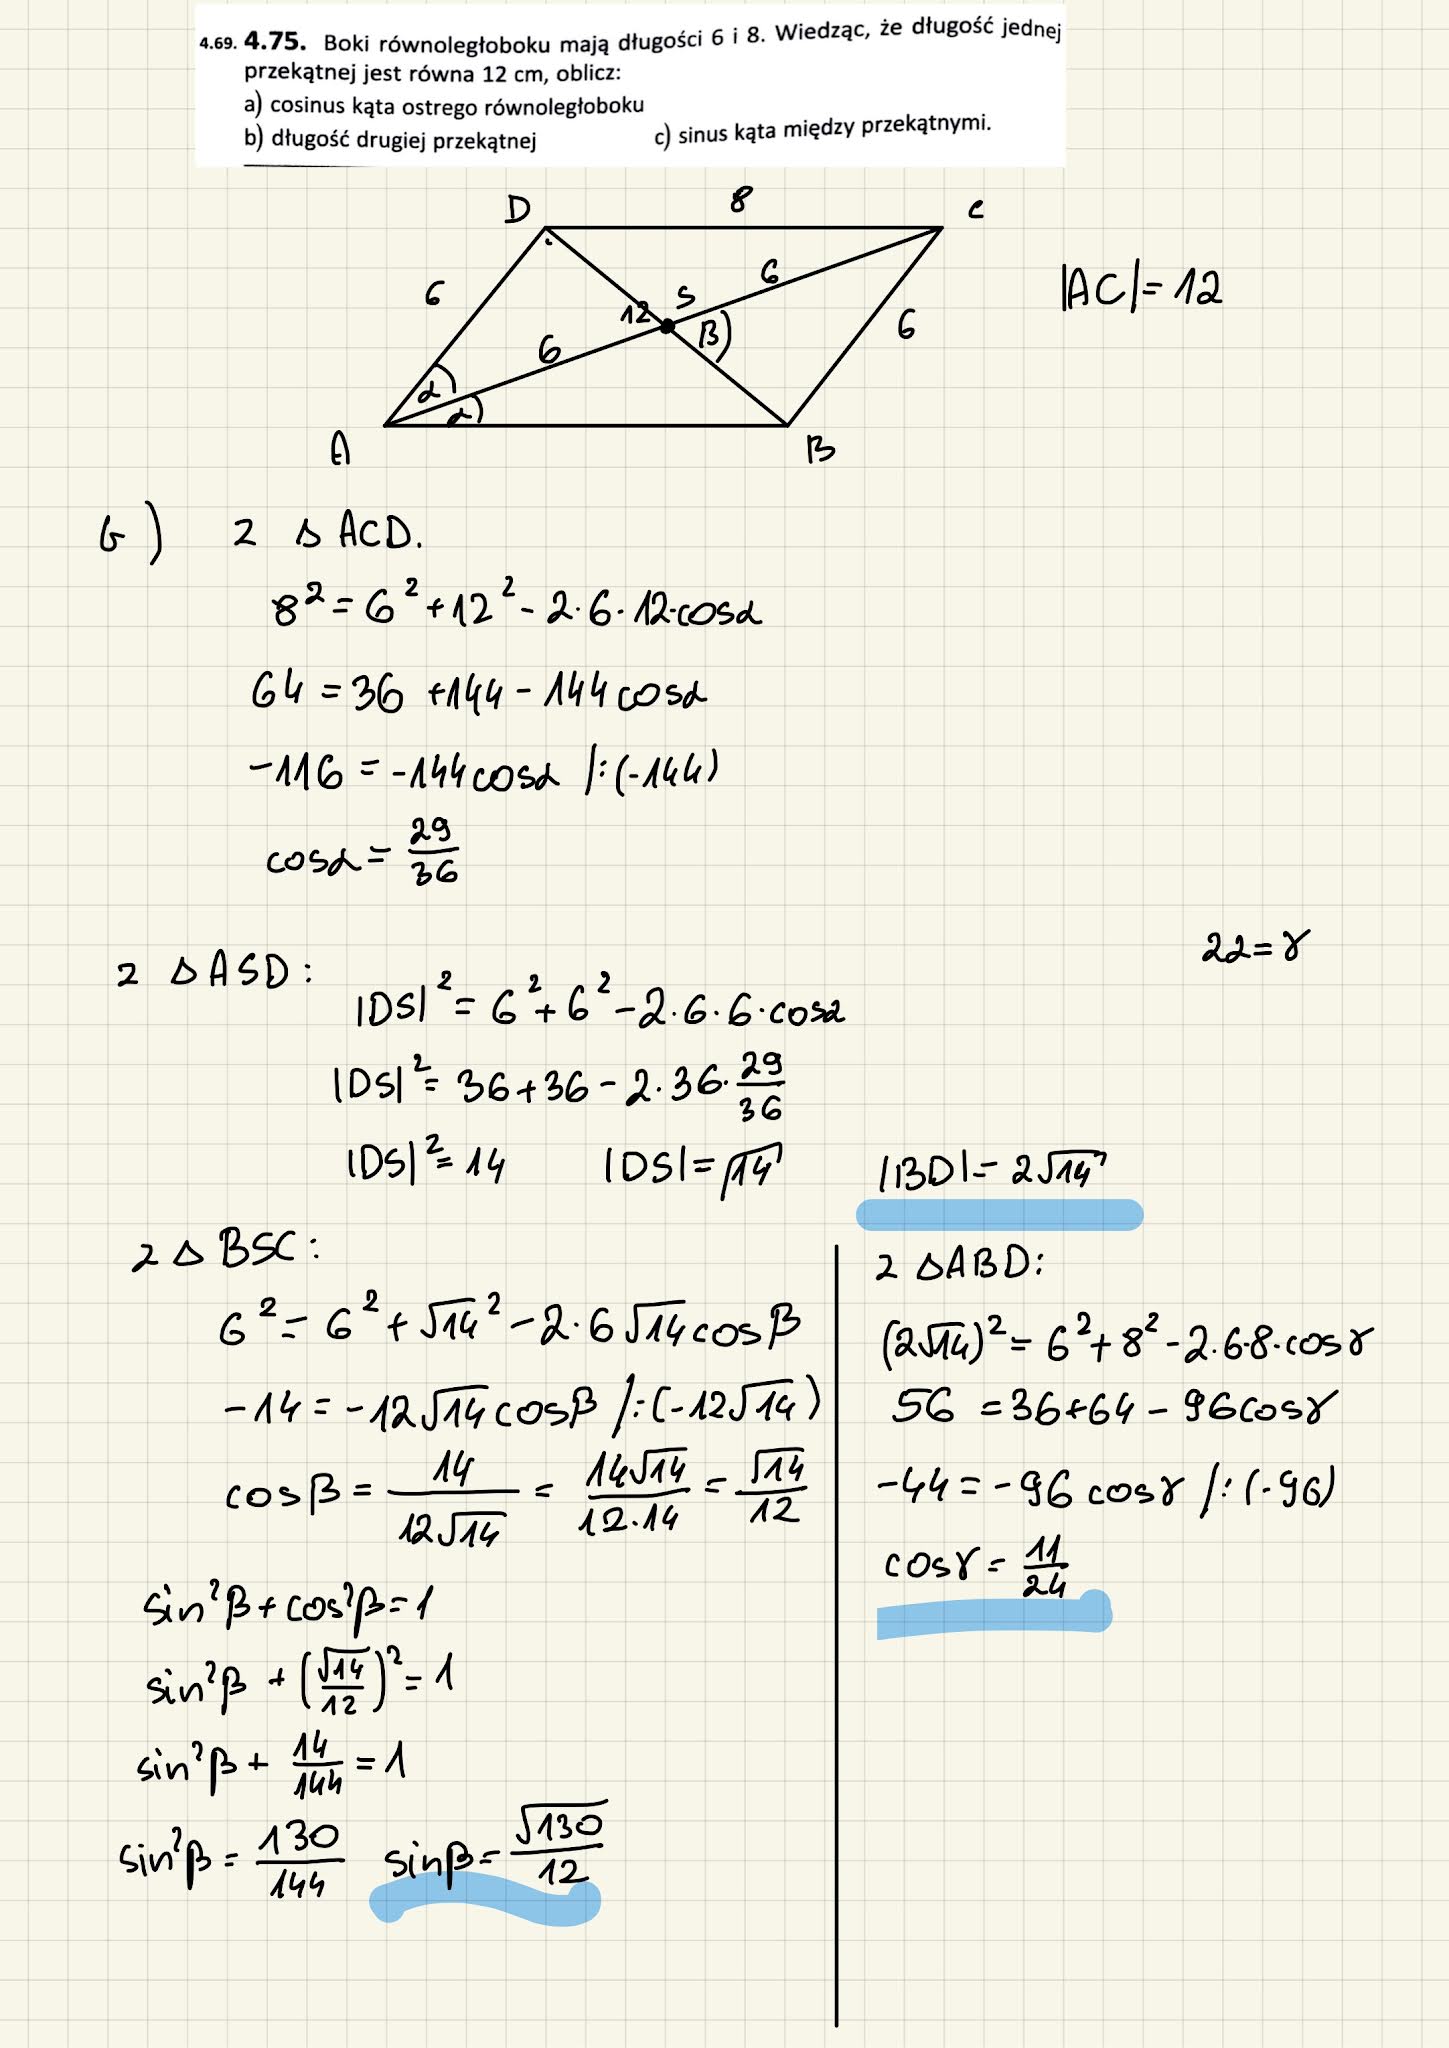 4.69. 4.75. Boki równoległoboku mają długości 6 i 8. Wiedząc, że długość jednej
przekątnej jest równa 12 cm, oblicz:
a) cosinus kąta ostrego równoległoboku
b) długość drugiej przekątnej c) sinus kąta między przekątnymi.
D 8 C
6 12 S 6 |AC| = 12
6 β 6
α
α
A B
b) z △ ACD.
8² = 6² + 12² - 2·6·12·cosα
64 = 36 + 144 - 144 cosα
-116 = -144 cosα /:(-144)
cosα = 29/36
2α = γ
z △ ASD:
|DS|² = 6² + 6² - 2·6·6·cosα
|DS|² = 36 + 36 - 2·36·29/36
|DS|² = 14 |DS| = √14 |BD| = 2√14
z △ BSC:
6² = 6² + √14² - 2·6√14 cosβ
-14 = -12√14 cosβ /:(-12√14)
cosβ = 14/12√14 = 14√14/12·14 = √14/12
sin²β + cos²β = 1
sin²β + (√14/12)² = 1
sin²β + 14/144 = 1
sin²β = 130/144 sinβ = √130/12
z △ABD:
(2√14)² = 6² + 8² - 2·6·8·cosγ
56 = 36 + 64 - 96cosγ
-44 = -96 cosγ /:(-96)
cosγ = 11/24